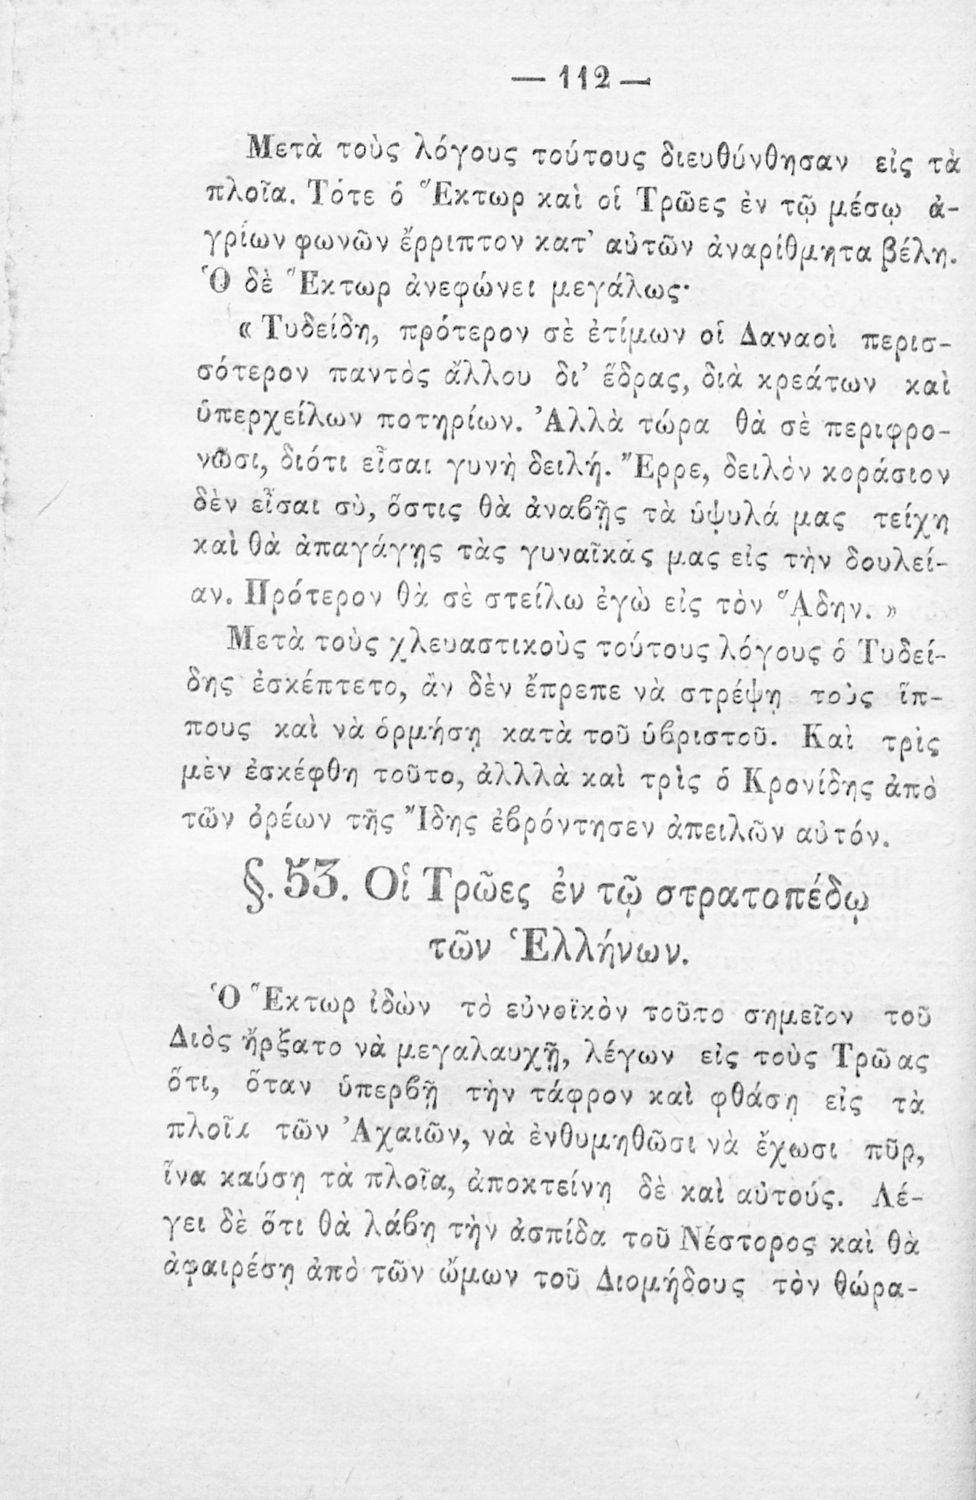 — 112 —
Μετὰ τοὺς λόγους τούτους διευθύνθησαν εἰς τὰ
πλοῖα. Τότε ὁ Ἕκτωρ καὶ οἱ Τρῶες ἐν τῷ μέσῳ ἀ-
γρίων φωνῶν ἔρριπτον κατ’ αὐτῶν ἀναρίθμητα βέλη.
Ὁ δὲ Ἕκτωρ ἀνεφώνει μεγάλως·
« Τυδείδη, πρότερον σὲ ἐτίμων οἱ Δαναοὶ περισ-
σότερον παντὸς ἄλλου δι’ ἕδρας, διὰ κρεάτων καὶ
ὑπερχείλων ποτηρίων. Ἀλλὰ τώρα θὰ σὲ περιφρο-
νῶσι, διότι εἶσαι γυνὴ δειλή. Ἔρρε, δειλὸν κοράσιον
δὲν εἶσαι σὺ, ὅστις θὰ ἀναβῇς τὰ ὑψυλά μας τείχη
καὶ θὰ ἀπαγάγῃς τὰς γυναῖκάς μας εἰς τὴν δουλεί-
αν. Πρότερον θὰ σὲ στείλω ἐγὼ εἰς τὸν ᾍδην. »
Μετὰ τοὺς χλευαστικοὺς τούτους λόγους ὁ Τυδεί-
δης ἐσκέπτετο, ἂν δὲν ἔπρεπε νὰ στρέψῃ τοὺς ἵπ-
πους καὶ νὰ ὁρμήσῃ κατὰ τοῦ ὑβριστοῦ. Καὶ τρὶς
μὲν ἐσκέφθη τοῦτο, ἀλλλὰ καὶ τρὶς ὁ Κρονίδης ἀπὸ
τῶν ὀρέων τῆς Ἴδης ἐβρόντησεν ἀπειλῶν αὐτόν.
§. 53. Οἱ Τρῶες ἐν τῷ στρατοπέδῳ
τῶν Ἑλλήνων.
Ὁ Ἕκτωρ ἰδὼν τὸ εὐνοϊκὸν τοῦτο σημεῖον τοῦ
Διὸς ἤρξατο νὰ μεγαλαυχῇ, λέγων εἰς τοὺς Τρῶας
ὅτι, ὅταν ὑπερβῇ τὴν τάφρον καὶ φθάσῃ εἰς τὰ
πλοῖα τῶν Ἀχαιῶν, νὰ ἐνθυμηθῶσι νὰ ἔχωσι πῦρ,
ἵνα καύσῃ τὰ πλοῖα, ἀποκτείνῃ δὲ καὶ αὐτούς. Λέ-
γει δὲ ὅτι θὰ λάβῃ τὴν ἀσπίδα τοῦ Νέστορος καὶ θὰ
ἀφαιρέσῃ ἀπὸ τῶν ὤμων τοῦ Διομήδους τὸν θώρα-